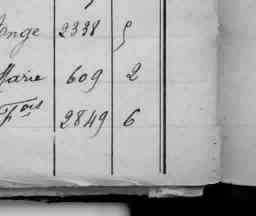 Ange 2338 5
Marie 609 2
Fois 2849 6